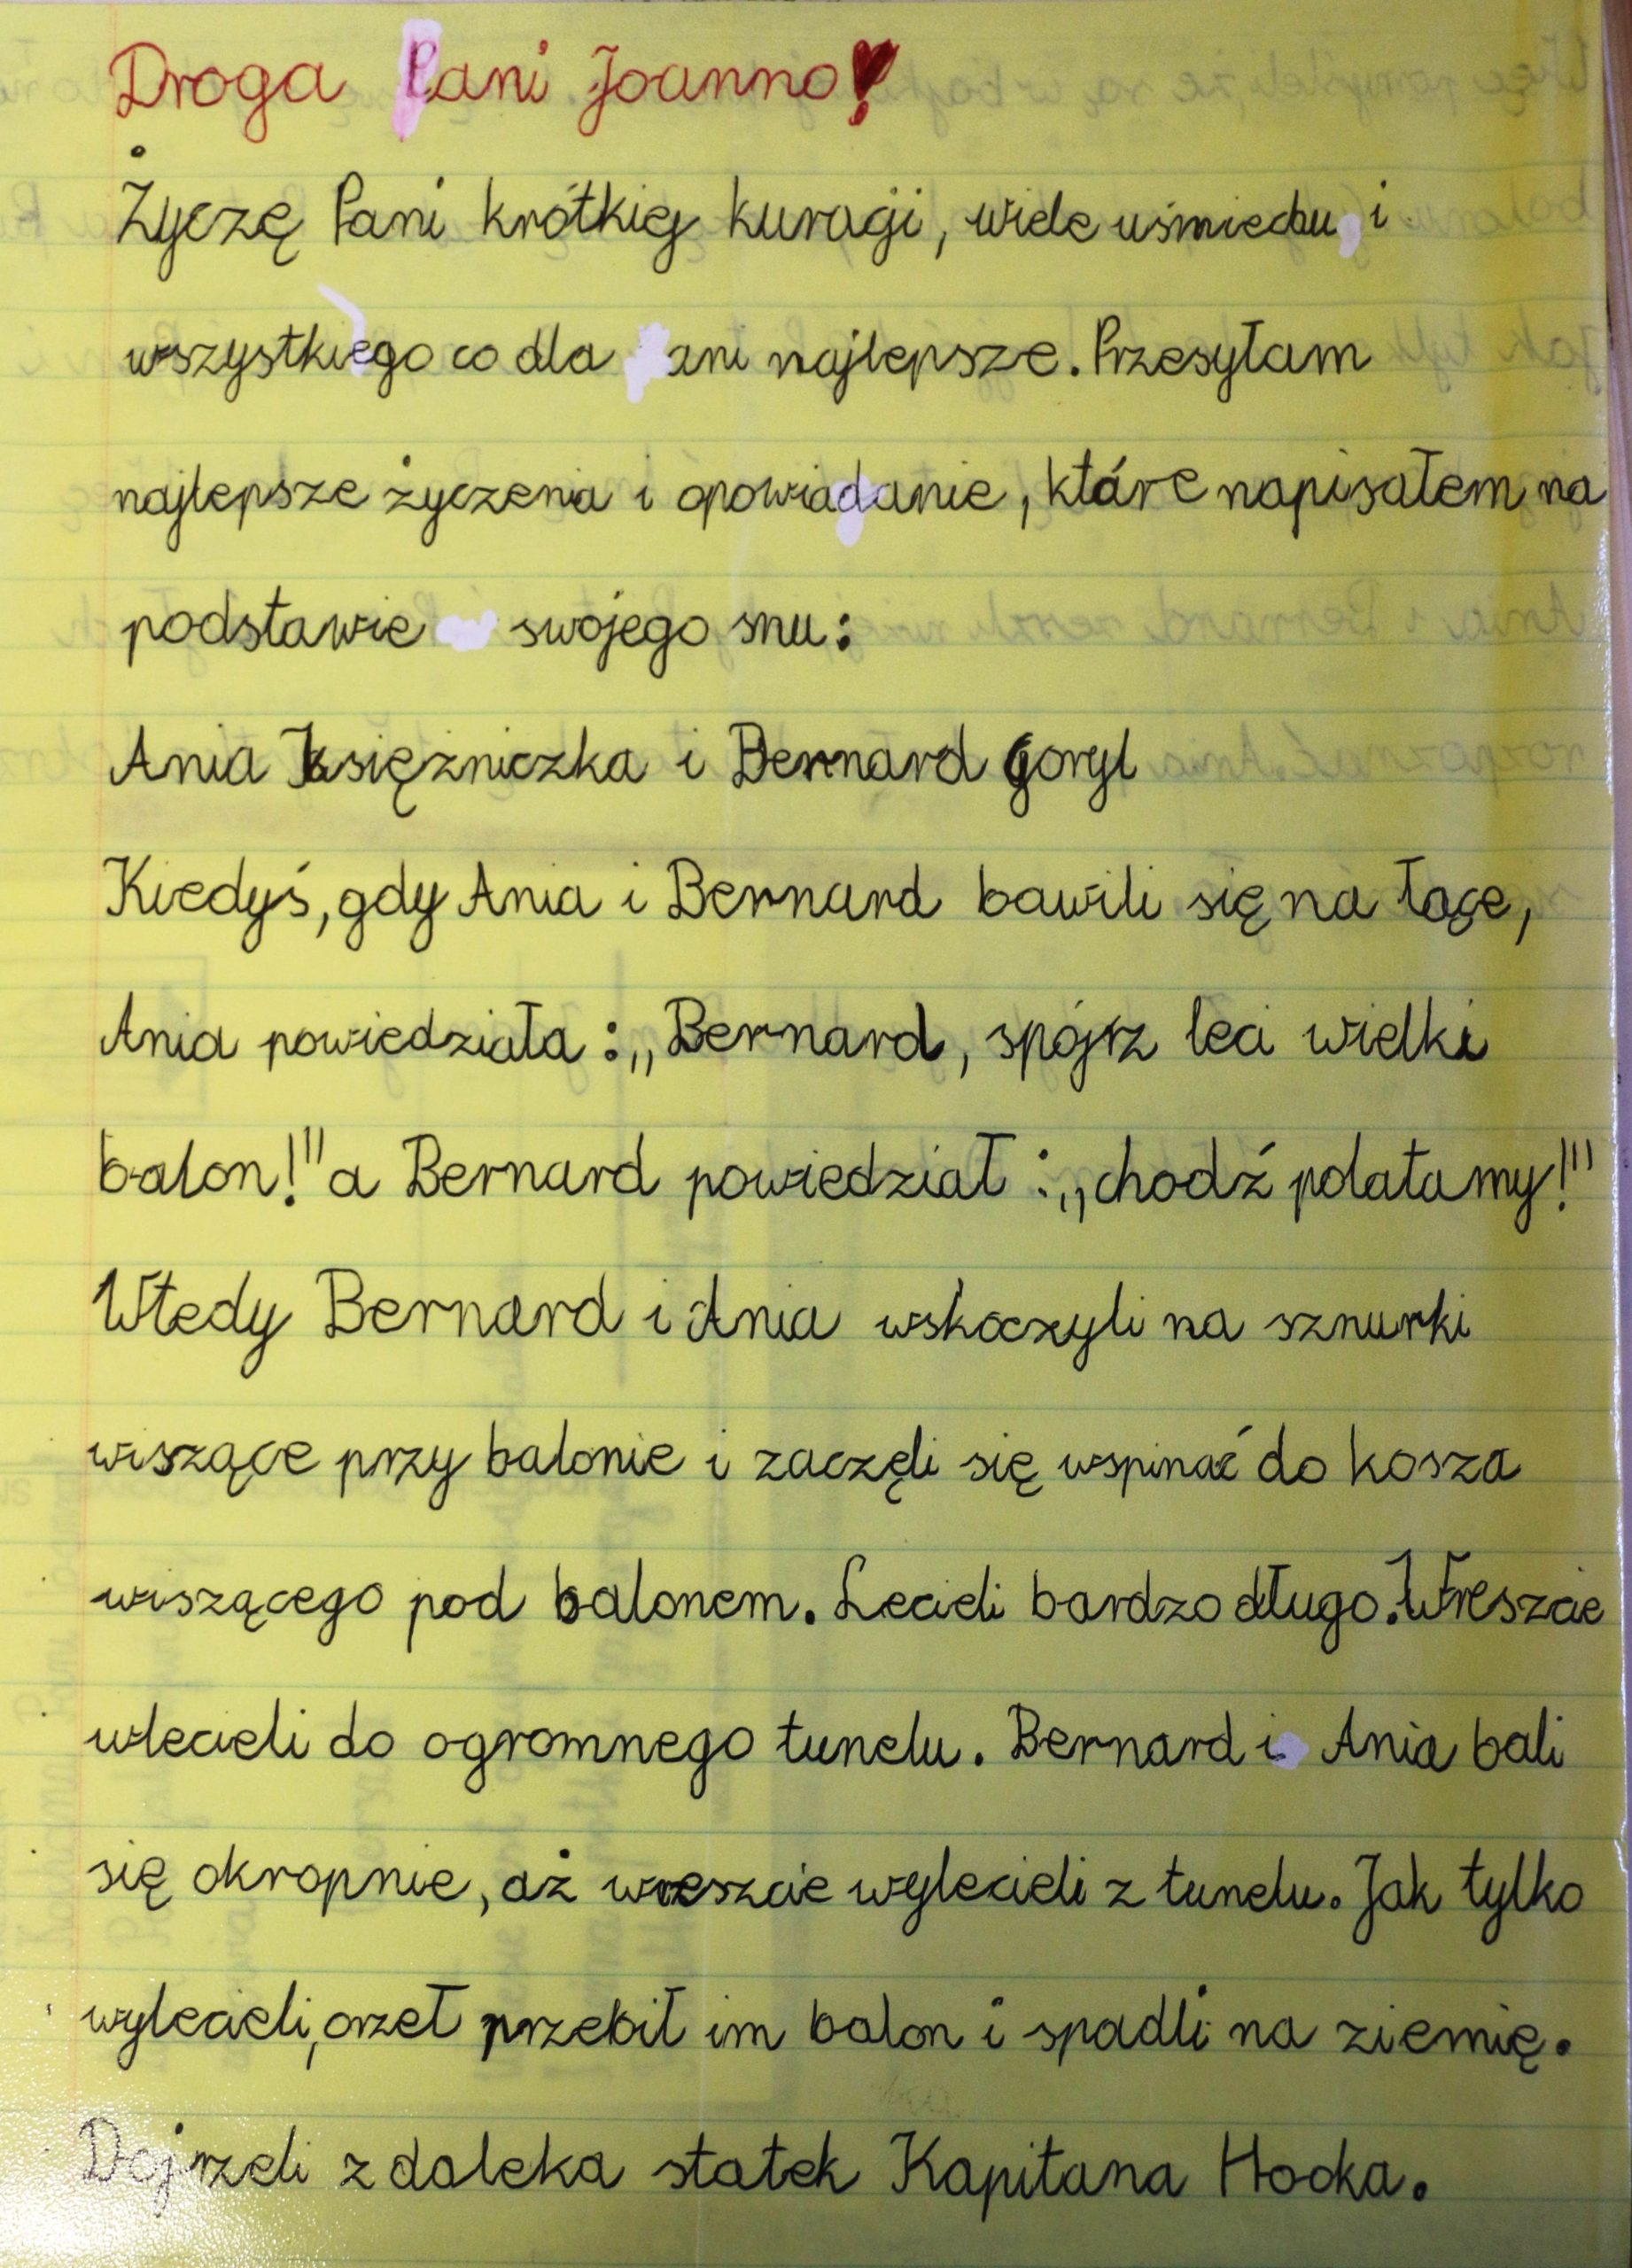 Droga Pani Joanno!
Życzę Pani krótkiej kuracji, wiele uśmiechu, i
wszystkiego co dla ani najlepsze. Przesyłam
najlepsze życzenia i opowiadanie, które napisałem na
podstawie swojego snu:
Ania Księżniczka i Bernard goryl
Kiedyś, gdy Ania i Bernard bawili się na łące,
Ania powiedziała: „Bernard, spójrz leci wielki
balon!" a Bernard powiedział: „chodź polatamy!"
Wtedy Bernard i Ania wskoczyli na sznurki
wiszące przy balonie i zaczęli się wspinać do kosza
wiszącego pod balonem. Lecieli bardzo długo. Wreszcie
wlecieli do ogromnego tunelu. Bernard i Ania bali
się okropnie, aż wreszcie wylecieli z tunelu. Jak tylko
wylecieli, orzeł przebił im balon i spadli na ziemię.
Dojrzeli z daleka statek Kapitana Hooka.